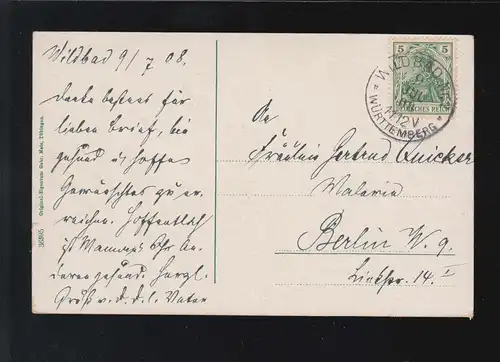 Wildbad 9/7 08.
Danke bestens für
lieben Brief, bin
gesund u. hoffe
Gewünschtes zu er-
reichen. Hoffentlich
ist Mamas Ohr an-
deren gesund. Herzl.
Gruß v. d. d. l. Vater
36985 Original-Eigentum Gebr. Metz, Tübingen.
5 5
DEUTSCHES REICH
WILDBAD
11-12 V
* WÜRTTEMBERG *
An
Fräulein Gertrud Quicker
Malerin
Berlin W. 9.
Linkstr. 14. I